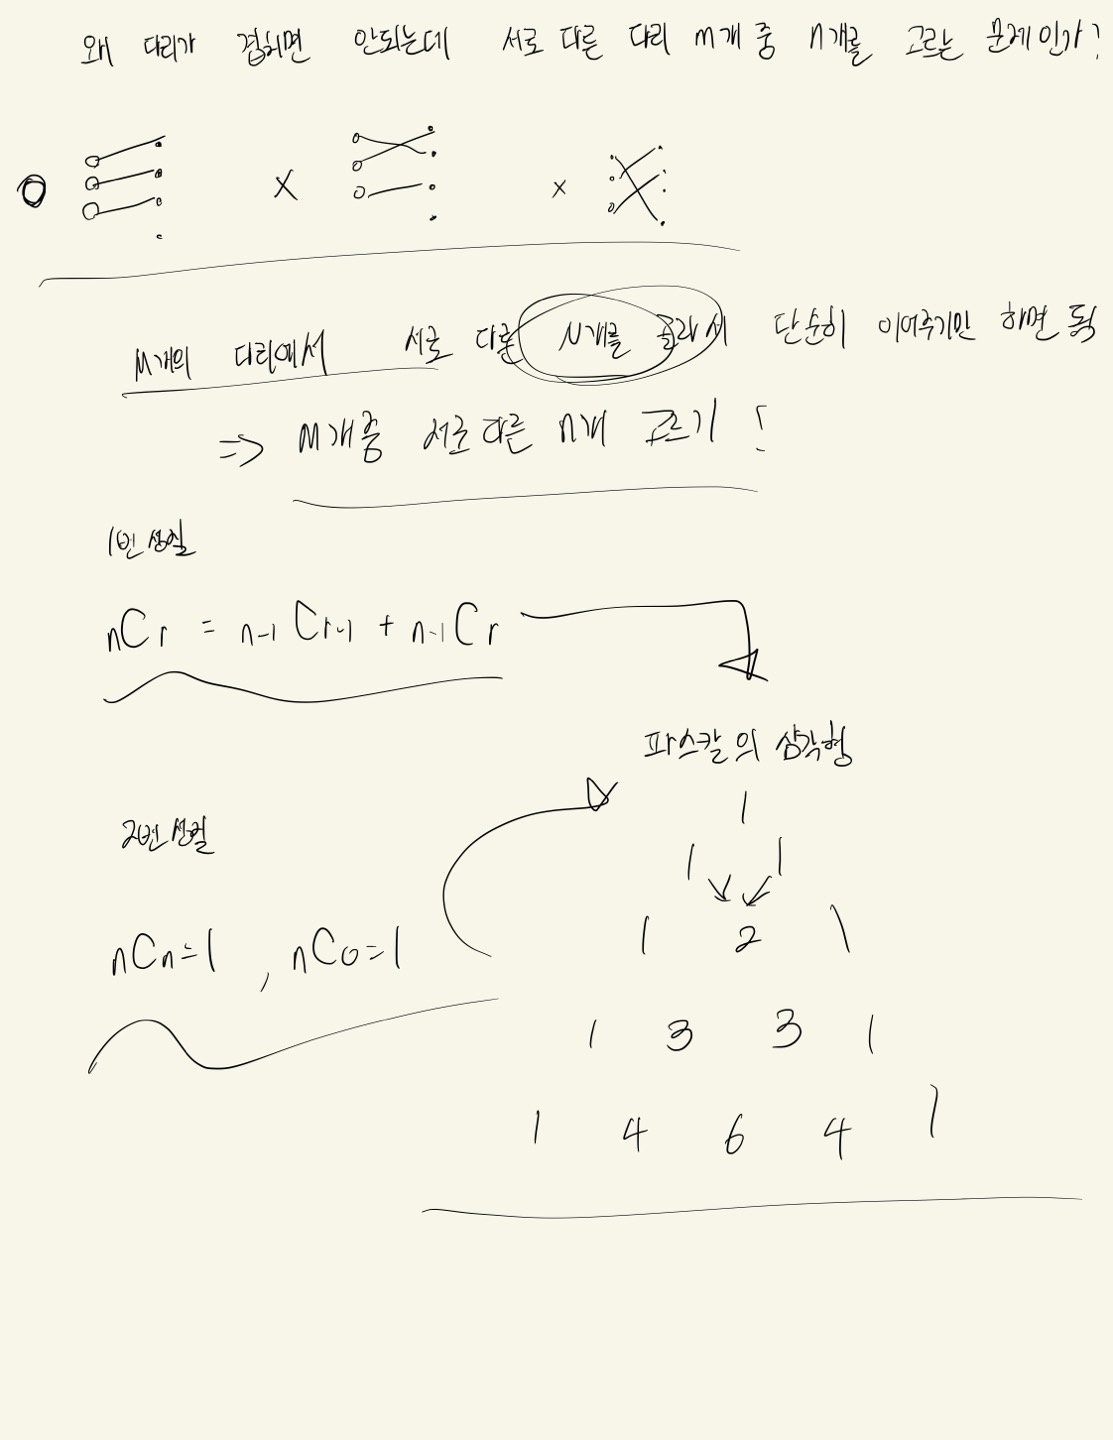 왜 다리가 겹치면 안되는데 서로 다른 다리 m개 중 n개를 고르는 문제인가?
O X x
M개의 다리에서 서로 다른 N개를 골라서 단순히 이어주기만 하면 됨
=> M개중 서로 다른 n개 고르기!
1번 성질
nCr = n-1Cr-1 + n-1Cr
파스칼의 삼각형
1
2번 성질
1 1
1 2 1
nCn=1, nC0=1
1 3 3 1
1 4 6 4 1